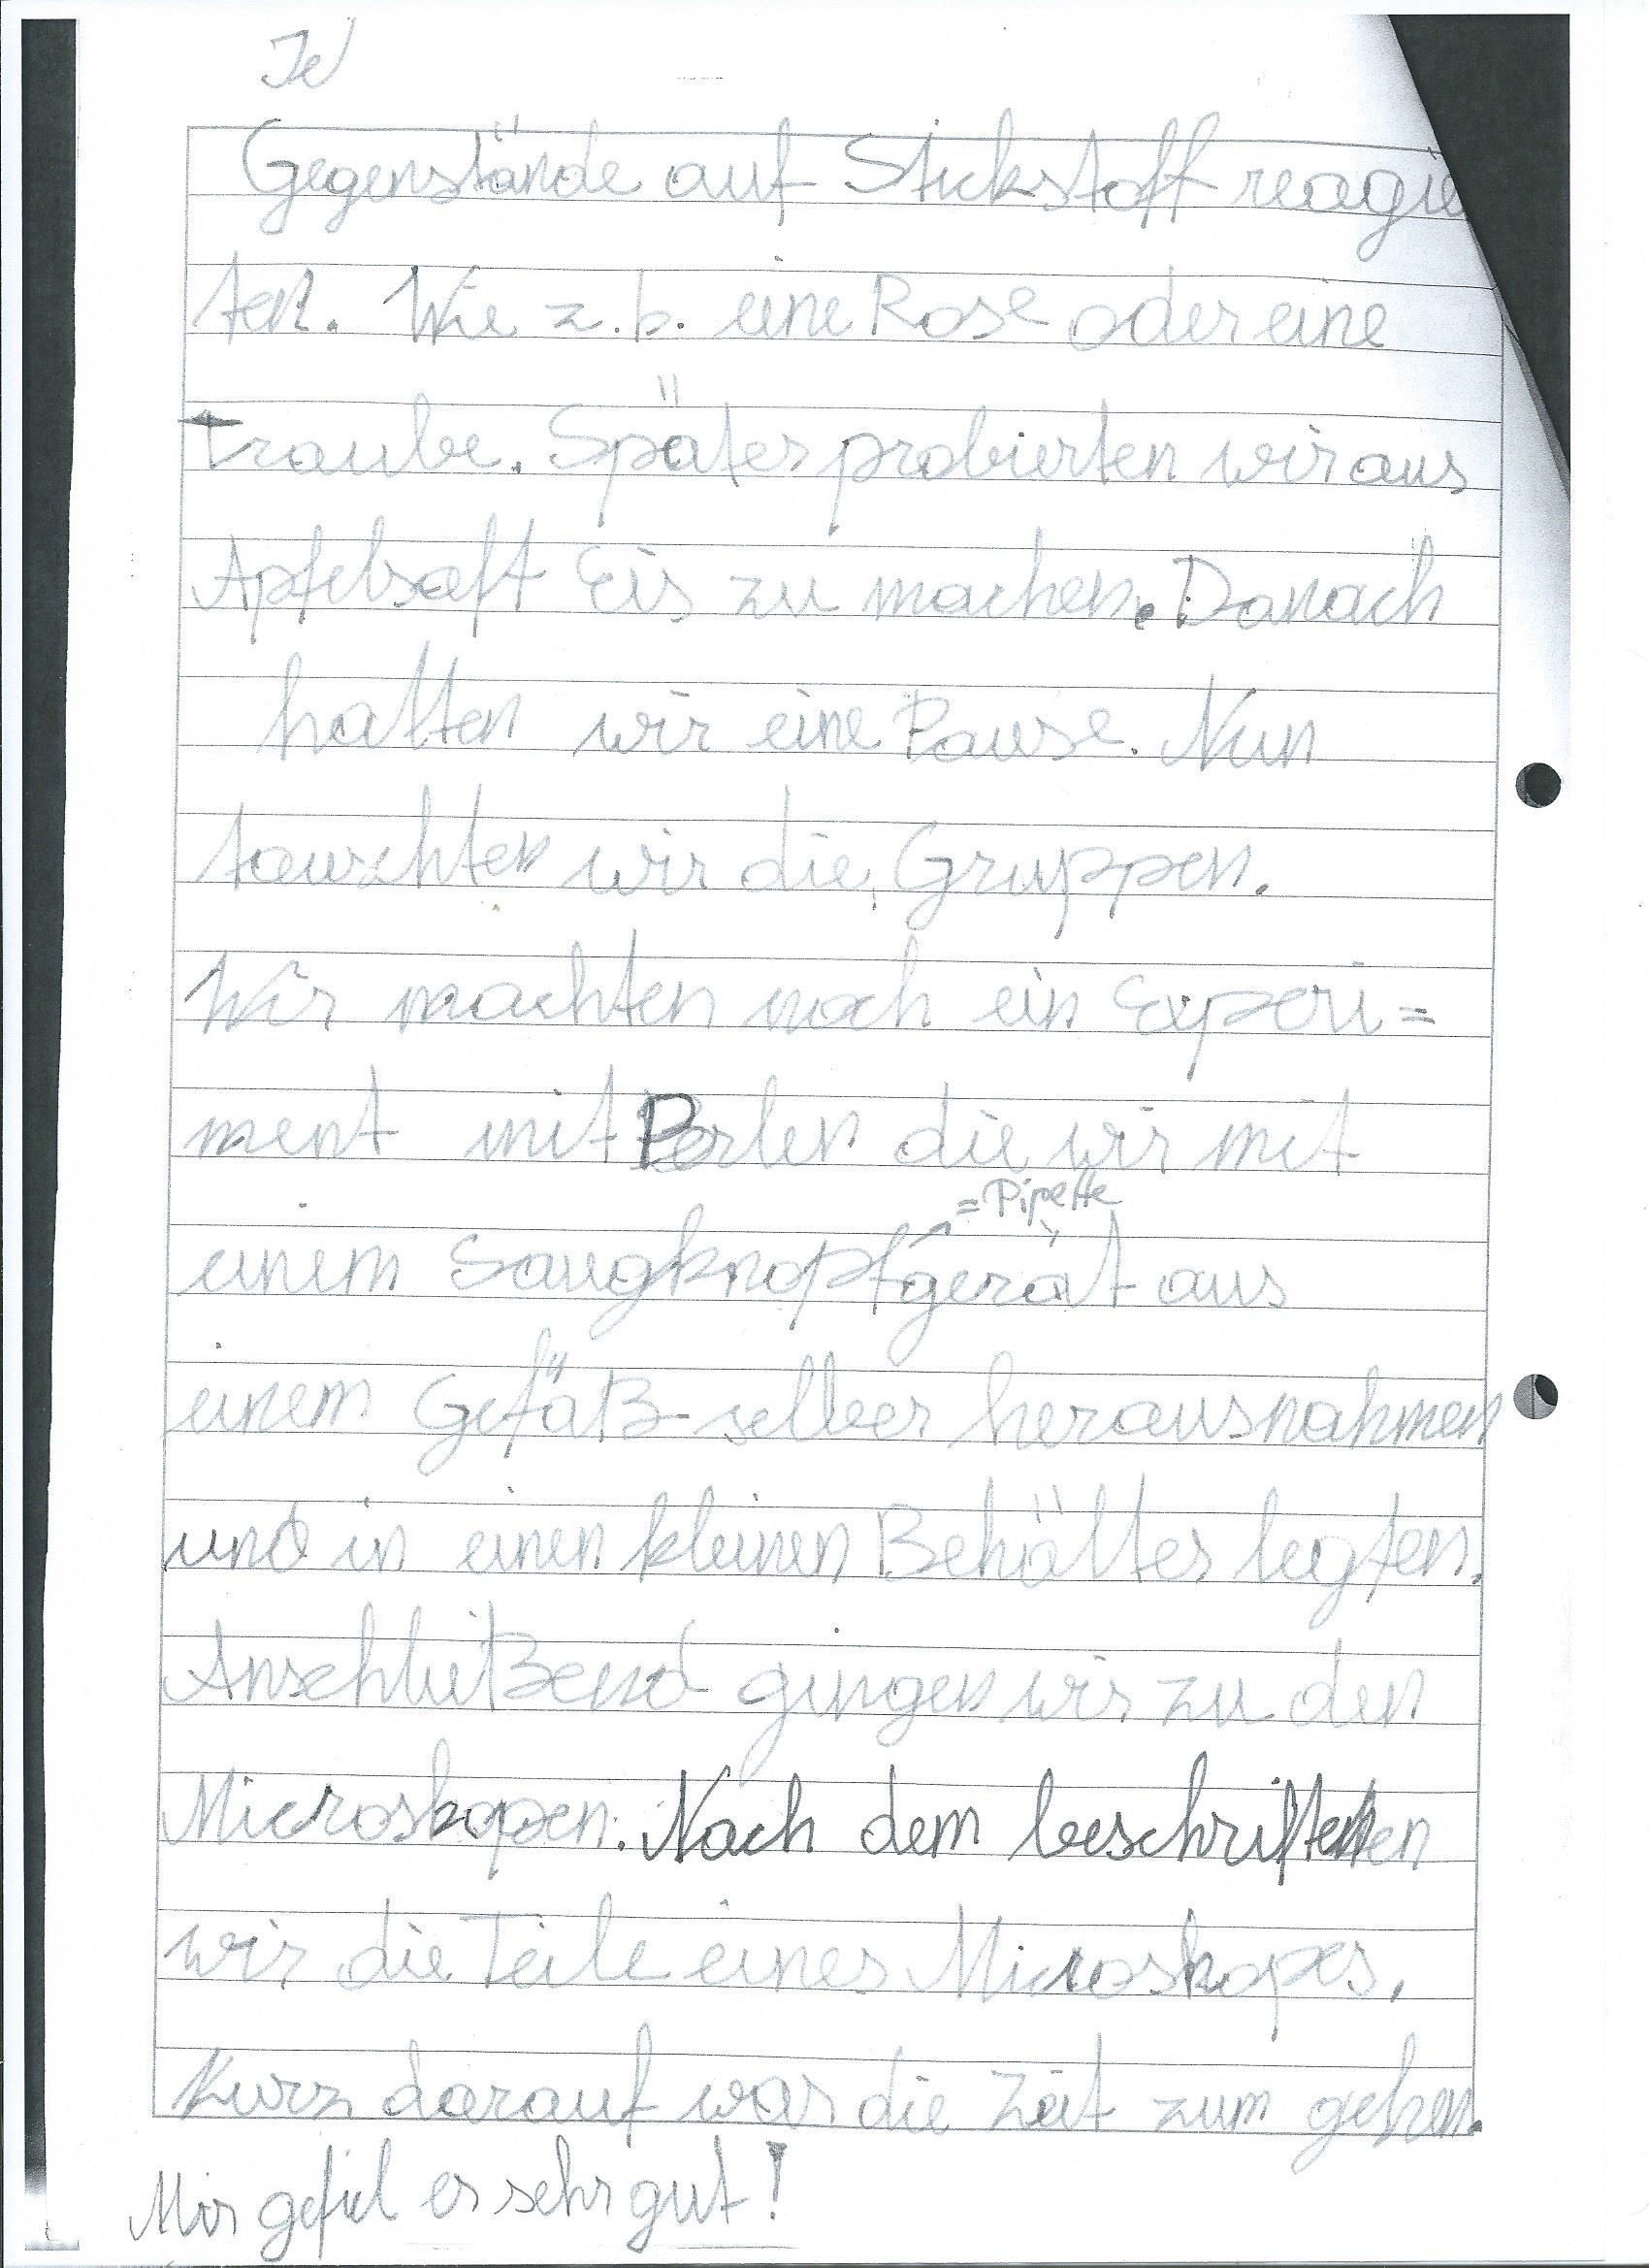 Gegenstände auf Stickstoff reagie
ten. Wie z.b. eine Rose oder eine
Traube. Später probierten wir aus
Apfelsaft Eis zu machen. Danach
hatten wir eine Pause. Nun
tauschten wir die Gruppen.
Wir machten noch ein Experi=
ment mit Perlen die wir mit
= Pipette
einem Saugknopfgerät aus
einem Gefäß selber herausnahmen
und in einen kleinen Behälter legten.
Anschließend gingen wir zu den
Microskopen. Nach dem beschrifteten
wir die Teile eines Microskopes.
Kurz darauf war die Zeit zum gehen.
Mir gefiel es sehr gut!